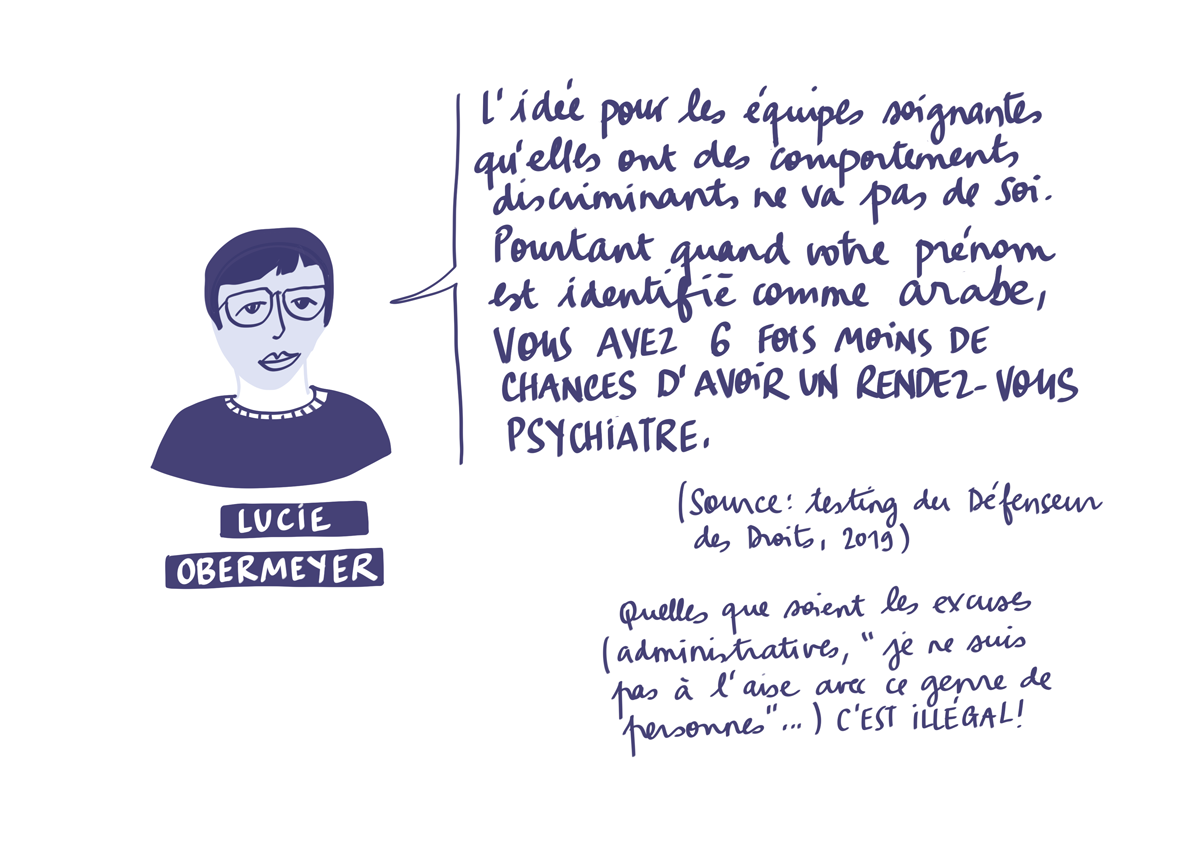 L'idée pour les équipes soignantes
qu'elles ont des comportements
discriminants ne va pas de soi.
Pourtant quand votre prénom
est identifié comme arabe,
VOUS AVEZ 6 FOIS MOINS DE
CHANCES D'AVOIR UN RENDEZ-VOUS
PSYCHIATRE.
(Source: testing du Défenseur
des Droits, 2019)
LUCIE
OBERMEYER
Quelles que soient les excuses
(administratives, "je ne suis
pas à l'aise avec ce genre de
personnes"...) C'EST ILLÉGAL!